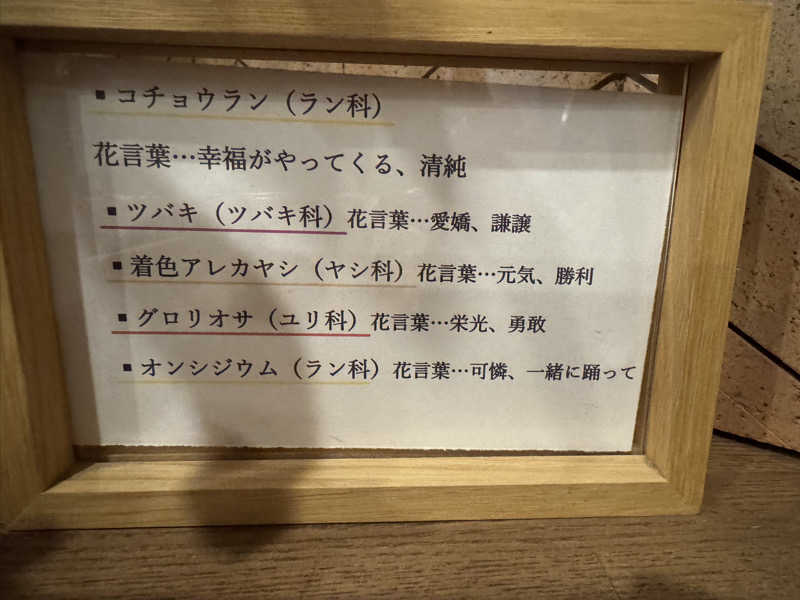 ▪コチョウラン（ラン科）
花言葉…幸福がやってくる、清純
▪ツバキ（ツバキ科）花言葉…愛嬌、謙譲
▪着色アレカヤシ（ヤシ科）花言葉…元気、勝利
▪グロリオサ（ユリ科）花言葉…栄光、勇敢
▪オンシジウム（ラン科）花言葉…可憐、一緒に踊って